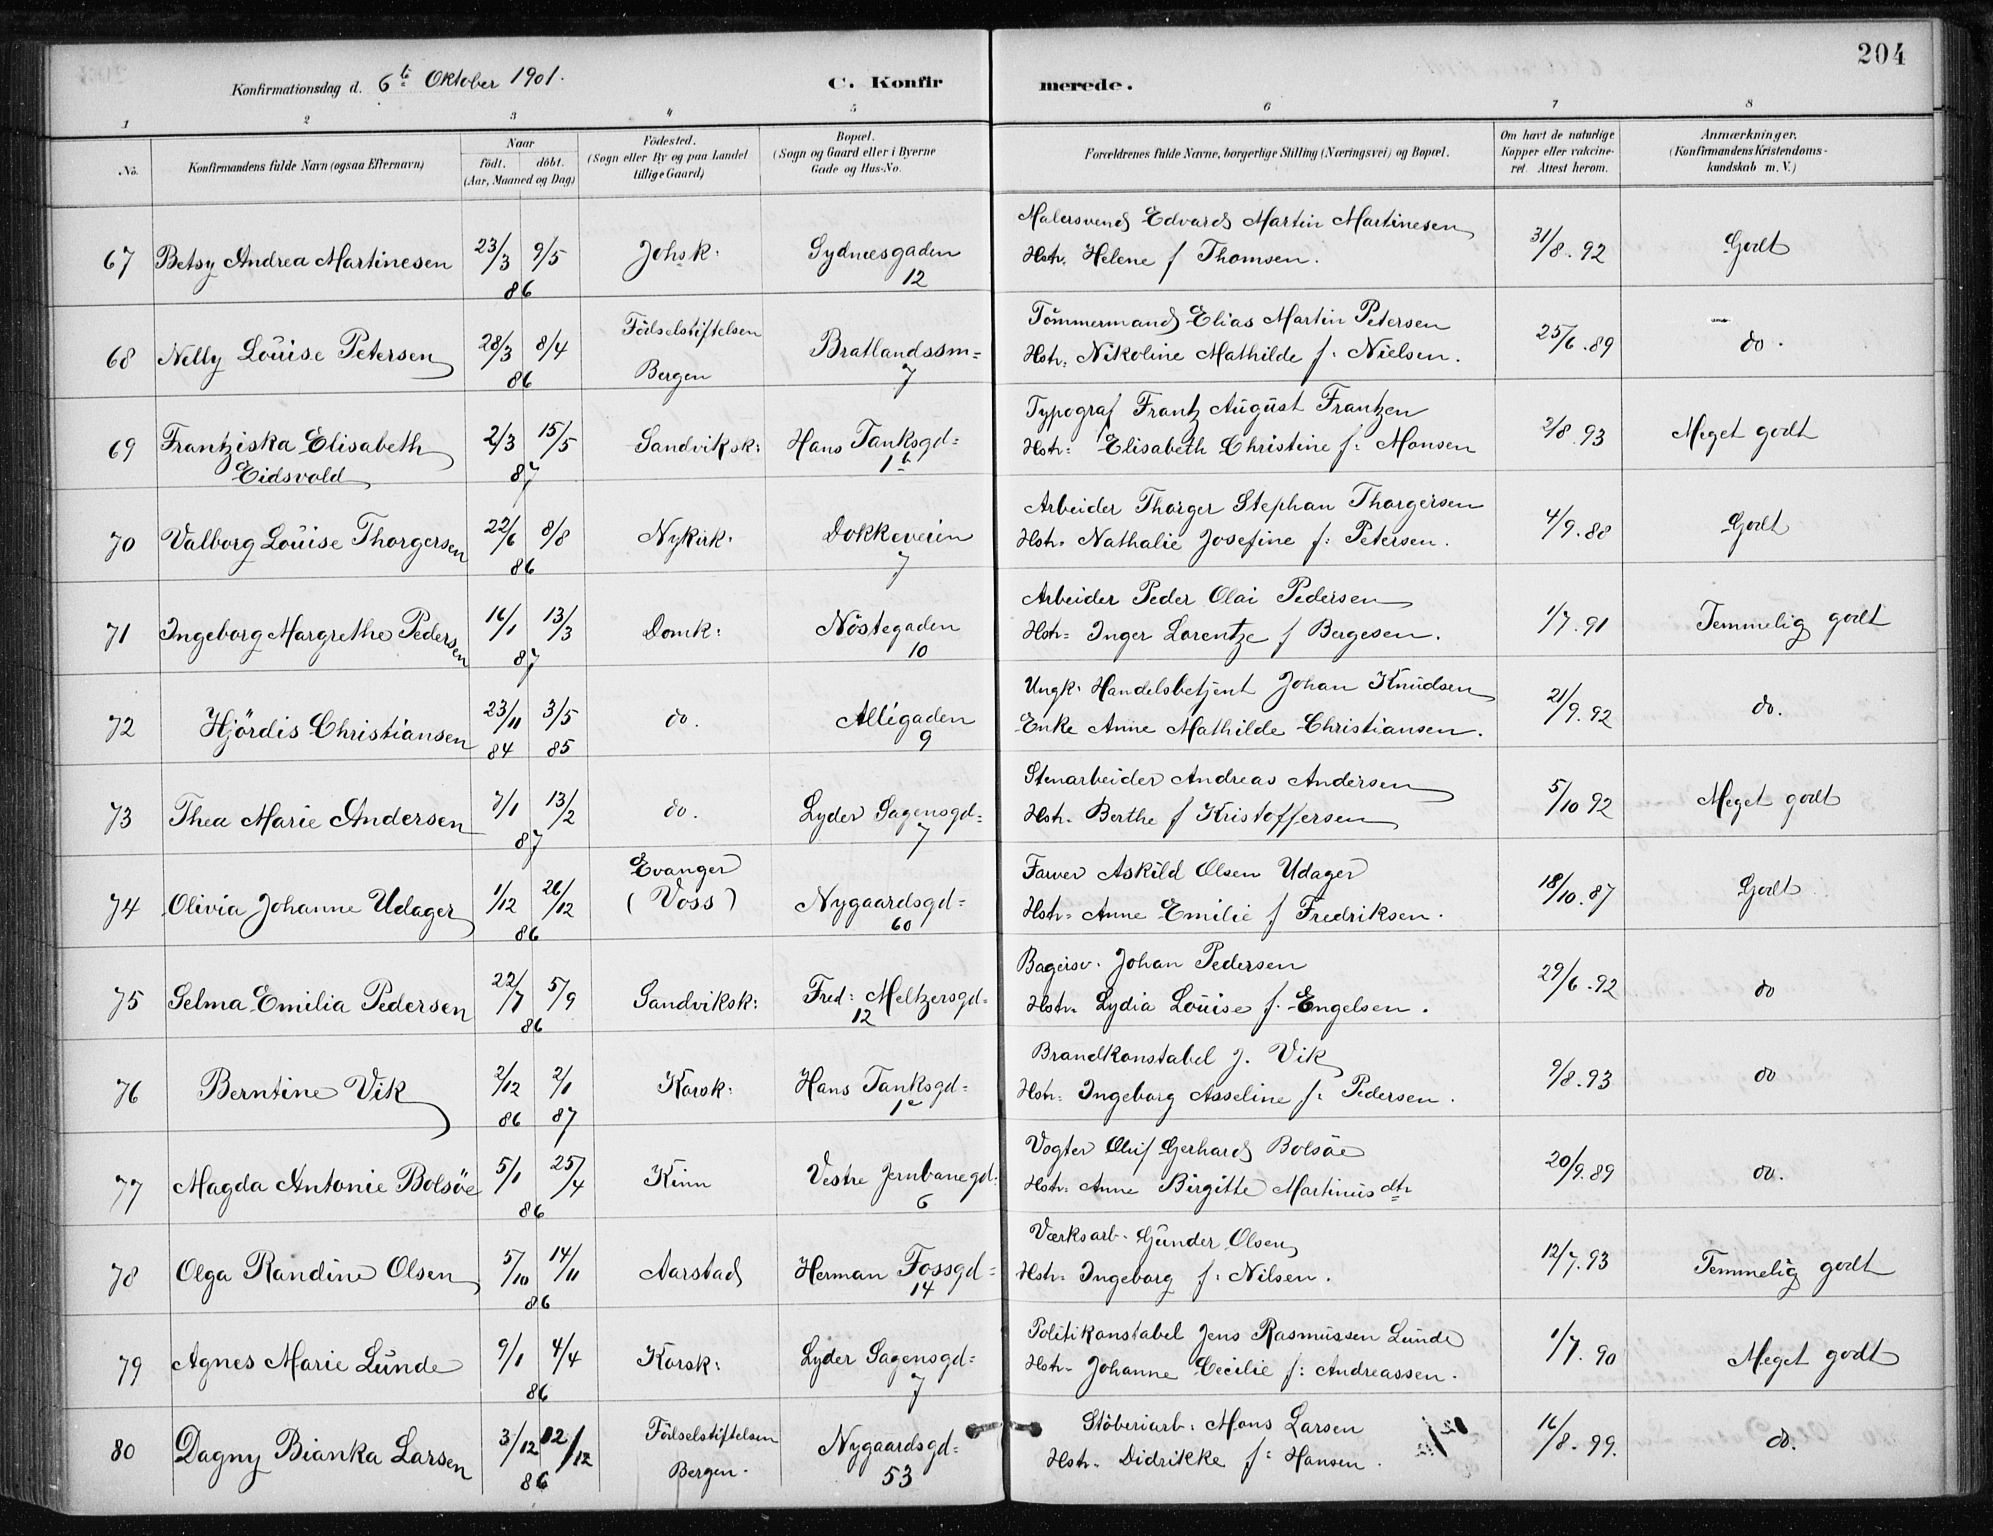 204
Konfirmationsdag d. 6te Oktober 1901.
C. Konfir
merede.
1 2 3 4 5 6 7 8
No.
Konfirmandens fulde Navn (ogsaa Efternavn)
Naar
födt. döbt.
(Aar, Maaned og Dag)
Födested.
(Sogn eller By og paa Landet
tillige Gaard)
Bopæl.
(Sogn og Gaard eller i Byerne
Gade og Hus-No.
Forældrenes fulde Navne, borgerlige Stilling (Næringsvei) og Bopæl.
Om havt de naturlige
Kopper eller vakcine-
ret. Attest herom.
Anmærkninger.
(Konfirmandens Kristendoms-
kundskab m. V.)
67 Betsy Andrea Martinesen 23/3 9/5 86 Johsk: Sydnæsgaden 12
Malersvend Edvard Martin Martinesen
Hstr. Helene f Thomsen.
31/8.92 Godt
68 Nelly Louise Petersen 28/3 8/4 86 Födselstiftelsen Bergen Bratlandssm= 7
Tömmermand Elias Martin Petersen
Hstr: Nikoline Mathilde f: Nielsen.
25/6.89 do.
69 Frantziska Elisabeth Eidsvold 2/3 15/5 87 Sandviksk: Hans Tanksgd= 1b
Typograf Frantz August Frantzen
Hstr: Elisabeth Christine f: Monsen
2/8.93 Meget godt
70 Valborg Louise Thorgersen 22/6 8/8 86 Nykirk: Dokkeveien 7
Arbeider Thorger Stephan Thorgersen
Hstr. Nathalie Josefine f: Petersen.
4/9.88 Godt
71 Ingeborg Margrethe Pedersen 16/1 13/3 87 Domk: Nöstegaden 10
Arbeider Peder Olai Pedersen
Hstr= Inger Lorentze f Bergesen.
1/7.91 Temmelig godt
72 Hjördis Christiansen 23/11 84 3/5 85 do. Allégaden 9
Ungk: Handelsbetjent Johan Knudsen
Enke Anne Mathilde Christiansen.
21/9.92 do.
73 Thea Marie Andersen 7/1 13/2 87 do. Lyder Sagensgd= 7
Stenarbeider Andreas Andersen
Hstr. Berthe f Kristoffersen
5/10 92 Meget godt
74 Olivia Johanne Udager 1/12 26/12 86 Evanger (Voss) Nygaardsgd= 60
Farver Askild Olsen Udager
Hstr= Anne Emilie f Fredriksen.
18/10.87 Godt
75 Selma Emilia Pedersen 22/7 5/9 86 Sandviksk: Fred: Meltzersgd= 12
Bagersv. Johan Pedersen
Hstr. Lydia Louise f. Engelsen.
29/6.92 do
76 Berntine Vik 2/12 86 2/1 87 Korsk: Hans Tanksgd= 1e
Brandkonstabel J. Vik
Hstr: Ingeborg Asseline f: Pedersen.
9/8.93 do
77 Magda Antonie Bolsöe 5/1 25/4 86 Kinn Vestre Jernbanegd: 6
Vogter Oluf Gerhard Bolsöe
Hstr: Anne Birgitte Martinusdtr
20/9.89 do.
78 Olga Randine Olsen 5/10 14/11 86 Aarstad Herman Fossgd= 14
Værksarb. Gunder Olsen
Hstr: Ingeborg f: Nilsen.
12/7.93 Temmelig godt
79 Agnes Marie Lunde 9/1 4/4 86 Korsk: Lyder Sagensgd= 7
Politikonstabel Jens Rasmussen Lunde
Hstr. Johanne Cecilie f: Andreassen.
1/7.90 Meget godt
80 Dagny Bianka Larsen 3/12 12/12 86 Födselstiftelsen Bergen. Nygaardsgd= 53
Stöberiarb: Mons Larsen
Hstr. Didrikke f: Hansen.
16/8.99. do.